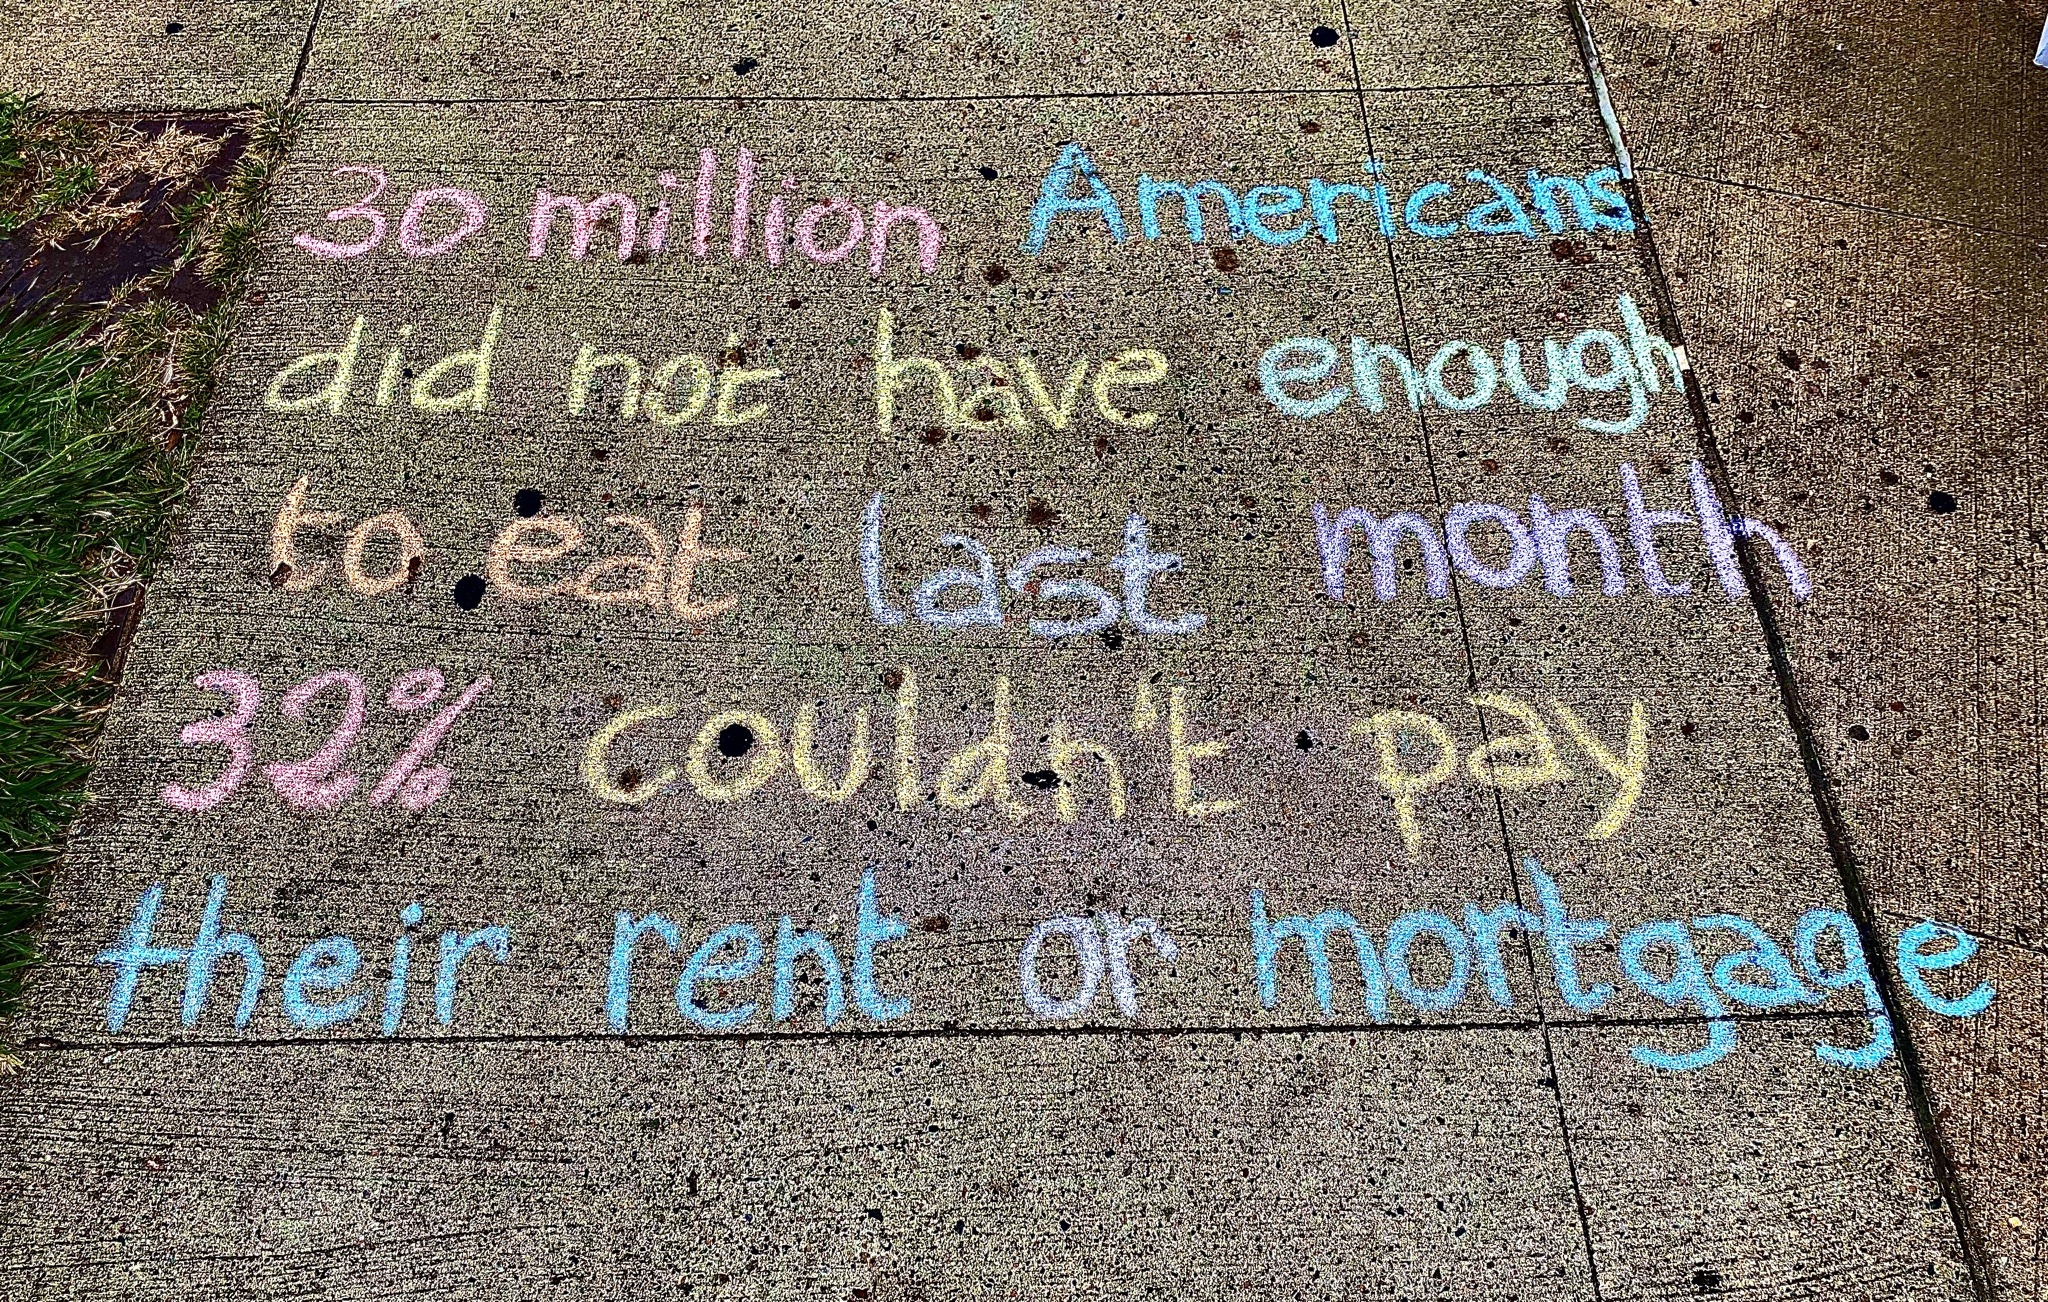 30 million Americans
did not have enough
to eat last month
32% couldn't pay
their rent or mortgage